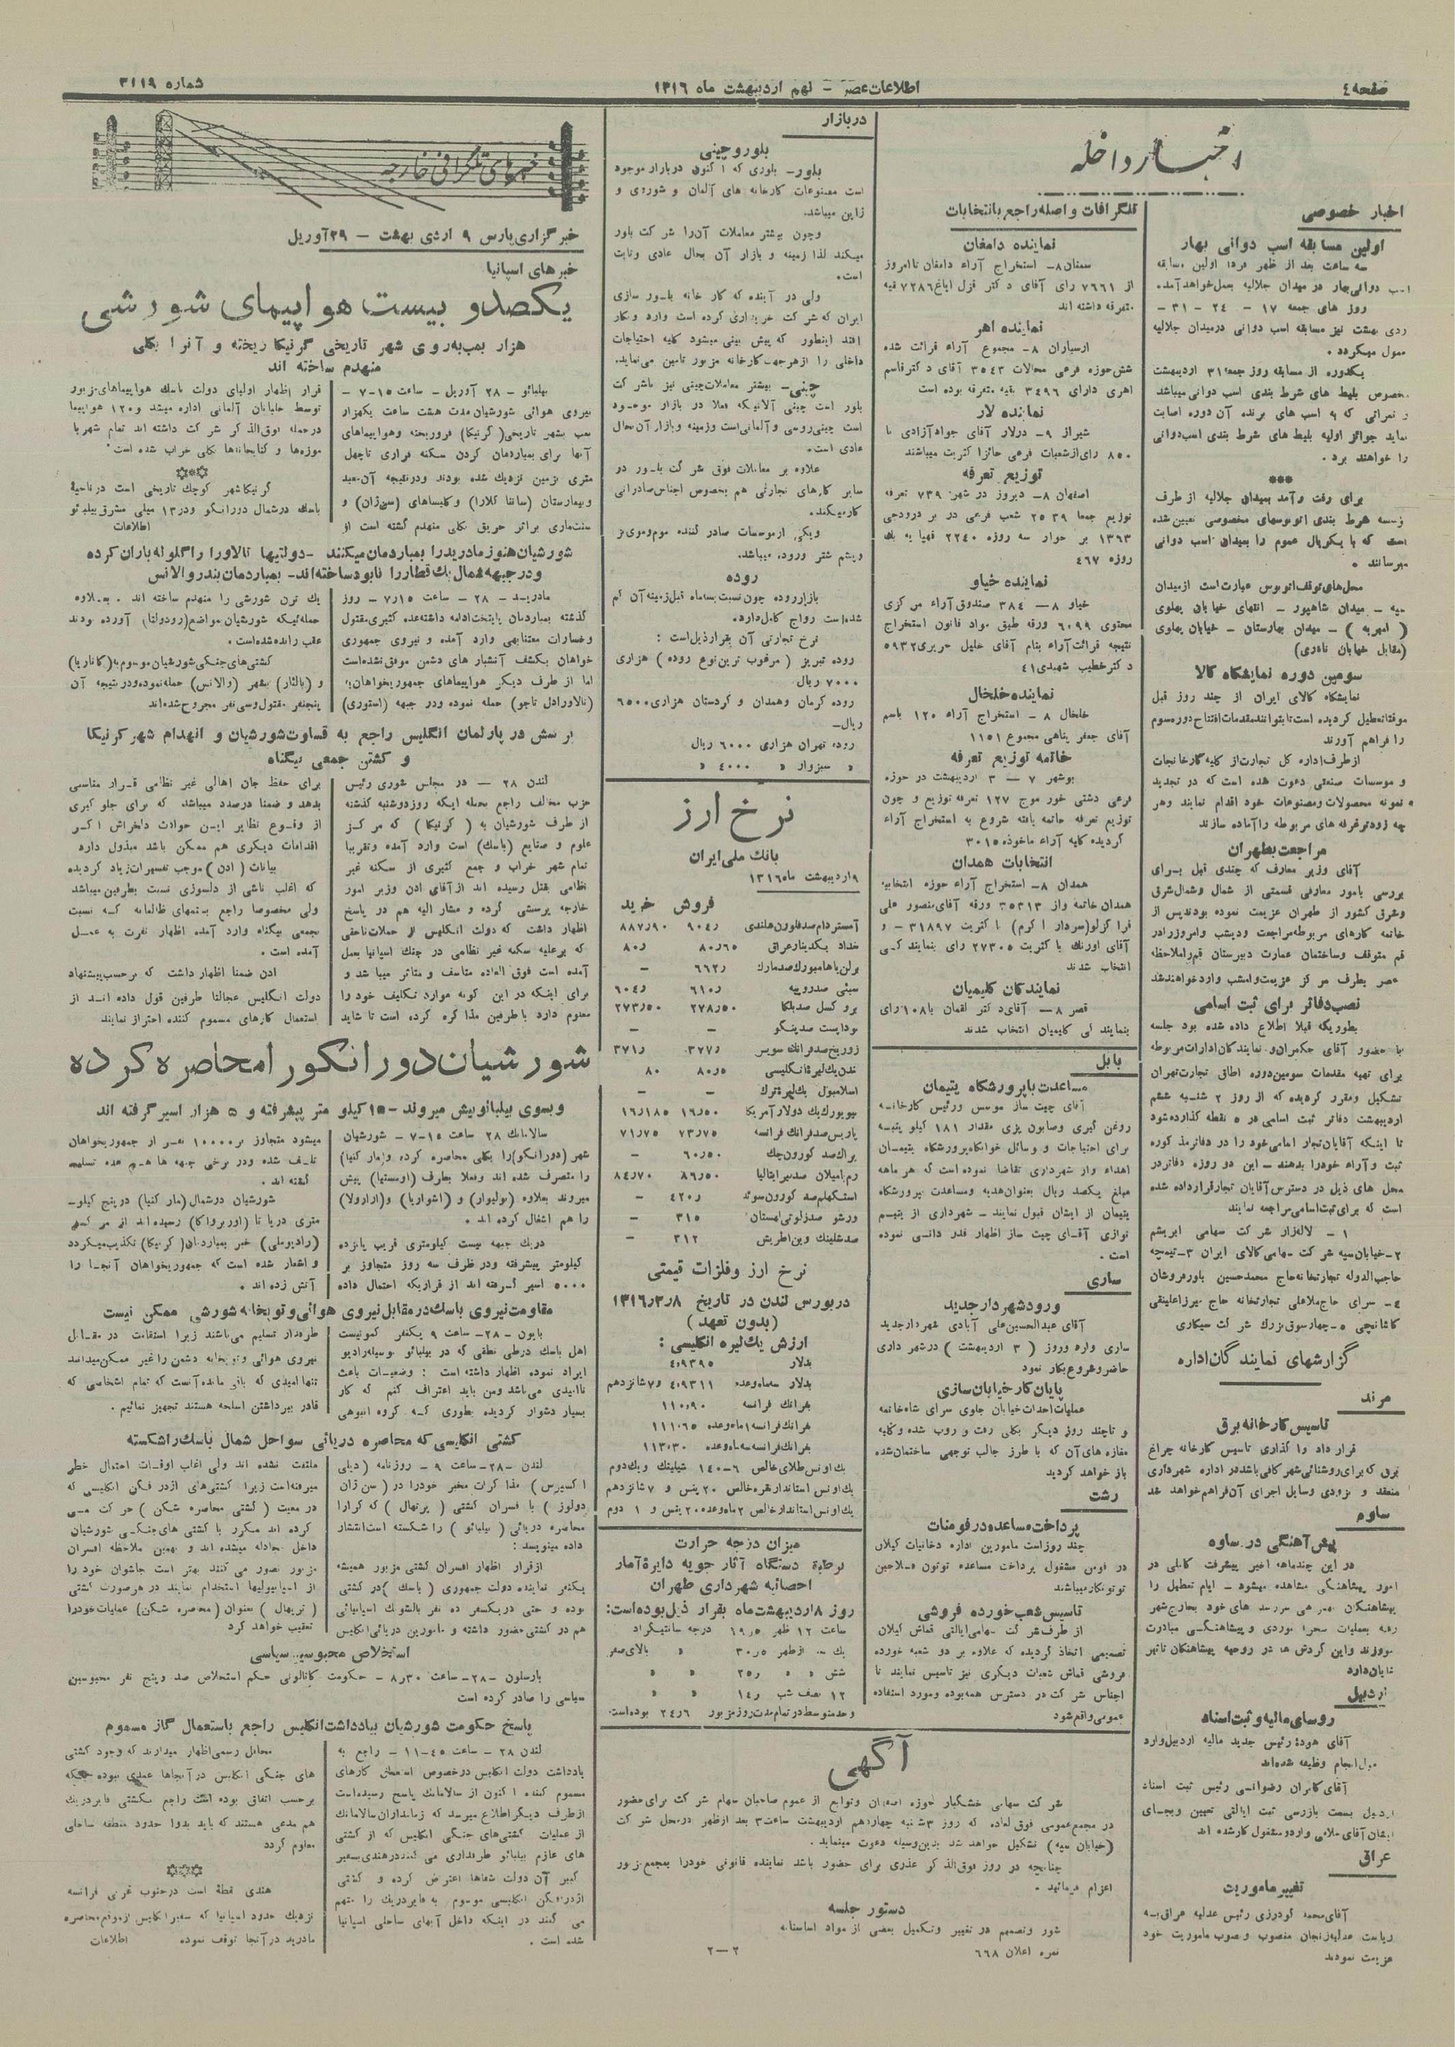 صفحه ٤
اطلاعات عصر - نهم اردیبهشت ماه ۱۳۱۶
شماره ۳۱۱۹
اخبار داخله
اخبار خصوصی
اولین مسابقه اسب دوانی بهار
سه ساعت بعد از ظهر فردا اولین مسابقه
دوانی بهار در میدان جلالیه بعمل خواهد آمد.
روز های جمعه ۱۷ - ۲۴ - ۳۱ -
بهشت نیز مسابقه اسب دوانی درمیدان جلالیه
میگردد.
یکدوره از مسابقه روز جمعه ۳۱ اردیبهشت
مخصوص بلیط های شرط بندی اسب دوانی میباشد
و نمراتی که به اسب های برنده آن دوره اصابت
نماید جوائز اولیه بلیط های شرط بندی اسب دوانی
را خواهند برد.
***
برای رفت وآمد بمیدان جلالیه از طرف
شرط بندی اتوبوسهای مخصوصی تعیین شده
است که با یکریال عموم را بمیدان اسب دوانی
میرسانند
محل‌های توقف اتوبوس عبارت است از میدان
سپه - میدان شاهپور - انتهای خیابان پهلوی
(امیریه) - میدان بهارستان - خیابان پهلوی
(مقابل خیابان نادری)
سومین دوره نمایشگاه کالا
نمایشگاه کالای ایران از چند روز قبل
موقتا تعطیل گردیده است تا بتوانند مقدمات افتتاح دوره سوم
را فراهم آورند
از طرف اداره کل تجارت از کلیه کارخانجات
و موسسات صنعتی دعوت شده است که در تجدید
نمونه محصولات و مصنوعات خود اقدام نمایند و هر
چه زودتر غرفه های مربوطه را آماده سازند
مراجعت بطهران
آقای وزیر معارف که چندی قبل برای
بررسی بامور معارفی قسمتی از شمال و شمال شرقی
و شرق کشور از طهران عزیمت نموده بودند پس از
خاتمه کارهای مربوطه مراجعت و دیشب وامروز را در
قم متوقف و ساختمان عمارت دبیرستان قم را ملاحظه
عصر بطرف مرکز عزیمت و امشب وارد خواهند شد
نصب دفاتر برای ثبت اسامی
بطوریکه قبلا اطلاع داده شده بود جلسه
با حضور آقای حکمران و نمایندگان ادارات مربوطه
برای تهیه مقدمات سومین دوره اطاق تجارت تهران
تشکیل و مقرر گردیده که از روز ۲ شنبه ششم
اردیبهشت دفاتر ثبت اسامی در ۵ نقطه گذارده شود
تا اینکه آقایان تجار اسامی خود را در دفاتر مذکوره
ثبت و آراء خود را بدهند - این دو روزه دفاتر در
محل های ذیل در دسترس آقایان تجار قرار داده شده
است که برای ثبت اسامی مراجعه نمایند
۱ - لاله‌زار شرکت سهامی ابریشم
۲- خیابان سپه شرکت سهامی کالای ایران ۳- تیمچه
حاجب‌الدوله تجارتخانه حاج محمدحسین یاورفروشان
٤- سرای حاج ملاعلی تجارتخانه حاج میرزاعلینقی
کاشانچی ٥- چهارسوق بزرگ شرکت سیگاری
گزارشهای نمایندگان اداره
مرند
تاسیس کارخانه برق
قرار داد واگذاری تاسیس کارخانه چراغ
برق که برای روشنائی شهر کافی باشد در اداره شهرداری
منعقد و بزودی وسایل اجرای آن فراهم خواهد شد
ساوه
پیش‌آهنگی در ساوه
در این چندماهه اخیر پیشرفت کاملی در
امور پیشاهنگی مشاهده میشود - ایام تعطیل را
پیشاهنگان خود بخارج شهر
رفته بعملیات صحرا نوردی و پیشاهنگی مبادرت
میورزند و این گردش ها در روحیه پیشاهنگان تاثیر
شایان دارد
اردبیل
روسای مالیه و ثبت اسناد
آقای هوده رئیس جدید مالیه اردبیل وارد
انجام وظیفه شده‌اند
آقای کامران رضوانی رئیس ثبت اسناد
اردبیل بسمت بازرسی ثبت ایالتی تعیین وبجای
ایشان آقای وارد و مشغول کار شده اند
عراق
تغییر ماموریت
آقای محمد گودرزی رئیس عدلیه عراق به
ریاست عدلیه زنجان منصوب و صوب ماموریت خود
عزیمت نمودند
تلگرافات واصله راجع بانتخابات
نماینده دامغان
سمنان ۸- استخراج آراء دامغان تا امروز
از ۷۶۶۱ رای آقای دکتر قزل ایاغ ۷۲۸۶ بقیه
متفرقه داشته اند
نماینده اهر
ارسباران ۸- مجموع آراء قرائت شده
شش حوزه فرعی محالات ۳۵۴۳ آقای دکتر قاسم
اهری دارای ۳۴۹۶ بقیه متفرقه بوده است
نماینده لار
شیراز ۹- در لار آقای جواد آزادی با
۸۵۰ رای از شعبات فرعی حائز اکثریت میباشند
توزیع تعرفه
اصفهان ۸- دیروز در شهر: ۷۳۹ تعرفه
توزیع جمعا ۲۵۳۹ شعب فرعی در بر درودحی
۱۳۹۳ بر خوار سه روزه ۲۲۴۰ قهپا یه یك
روزه ٤٦٧
نماینده خیاو
خیاو ۸- ۳۸٤ صندوق آراء مرکزی
محتوی ۶۰۹۹ ورقه طبق مواد قانون استخراج
نتیجه قرائت آراء بنام آقای خلیل حریری ۵۹۳۲
دکتر خطیب شهیدی ٤١
نماینده خلخال
خلخال ۸ - استخراج آراء ۱۲۰ باسم
آقای جعفر پناهی مجموع ۱۱۵۱
خاتمه توزیع تعرفه
بوشهر ۷ - ۳ اردیبهشت در حوزه
فرعی دشتی خور موج ۱۲۷ تعرفه توزیع و چون
توزیع تعرفه خاتمه یافته شروع به استخراج آراء
گردیده کلیه آراء ماخوذه ۳۰۱۵
انتخابات همدان
همدان ۸- استخراج آراء حوزه انتخابیه
همدان خاتمه و از ۳۵۳۱۳ ورقه آقای منصور علی
قراگزلو (سردار اکرم) با کثریت ۳۱۸۹۷ - و
آقای اورنگ با کثریت ۲۷۳۰۵ رای بنمایندگی
انتخاب شدند
نمایندگان کلیمیان
قصر ۸- آقای دکتر لقمان با ۱۰۸ رای
بنمایندگی کلیمیان انتخاب شدند
بابل
مساعدت با پرورشگاه یتیمان
آقای چیت ساز موسس و رئیس کارخانه
روغن گیری و صابون پزی مقدار ۱۸۱ کیلو پنبه
برای احتیاجات و وسائل خوابگاه پرورشگاه یتیمان
اهداء و از شهرداری تقاضا نموده است که هر ماهه
مبلغ یکصد ریال بعنوان هدیه و مساعدت پرورشگاه
یتیمان از ایشان قبول نمایند - شهرداری از یتیم
نوازی آقای چیت ساز اظهار قدر دانی نموده
است.
ساری
ورود شهردار جدید
آقای عبدالحسین علی آبادی شهردار جدید
ساری وارد وروز (۳ اردیبهشت) در شهر داری
حاضر و شروع بکار نمود
پایان کار خیابان سازی
عملیات احداث خیابان جلوی سرای شاه خاتمه
و تا چند روز دیگر بکلی رفت و روب شده و کلیه
مغازه های آن که با طرز جالب توجهی ساختمان شده
باز خواهد گردید
رشت
پرداخت مساعده در فومنات
چند روز است مامورین اداره دخانیات گیلان
در فومن مشغول پرداخت مساعده توتون فلاحین
توتونکار میباشند
تاسیس شعب خورده فروشی
از طرف شرکت سهامی ایالتی قماش گیلان
تصمیمی اتخاذ گردیده که علاوه بر دو شعبه خورده
فروشی قماش شعبات دیگری نیز تاسیس نمایند تا
اجناس شرکت در دسترس همه بوده و مورد استفاده
عمومی واقع شود
در بازار
بلور و چینی
بلور - بلوری که اکنون در بازار موجود
است مصنوعات کارخانه های آلمان و شوروی و
ژاپن میباشد.
وچون بیشتر معاملات آن را شرکت بلور
میکند لذا زمینه و بازار آن بحال عادی و ثابت
است.
ولی در آینده که کارخانه بلور سازی
ایران که شرکت خریداری کرده است وارد وبکار
افتد اینطور که پیش بینی میشود کلیه احتیاجات
داخلی را از هر جهت کارخانه مزبور تامین می‌نماید.
چینی - بیشتر معاملات چینی نیز باشرکت
بلور است چینی آلاتیکه فعلا در بازار موجود
است چینی روسی و آلمانی است و زمینه و بازار آن بحال
عادی است.
علاوه بر معاملات فوق شرکت بلور در
سایر کارهای تجارتی هم بخصوص اجناس صادراتی
کار میکند.
ویکی از موسسات صادر کننده موم و موی بز
و پشم شتر و روده میباشد.
روده
بازار روده چون نسبت بسه ماه قبل زمینه آن کم
شده است رواج کامل دارد.
نرخ تجارتی آن بقرار ذیل است:
روده تبریز (مرغوب ترین نوع روده) هزاری
۷۰۰۰ ریال
روده کرمان و همدان و کردستان هزاری ۶۵۰۰
ریال -
روده تهران هزاری ۶۰۰۰ ریال
« سبزوار « ۴۰۰۰ «
نرخ ارز
بانك ملی ایران
۹ اردیبهشت ماه ۱۳۱۶
فروش خرید
آمستردام صد فلورن هلندی ۹۰۴٫ ۸۸۷٫۹۰
بغداد یکدینار عراقی ۸۰٫۶۵ ۸۰٫
برلن یا هامبورك صد مارك ۶۶۲٫ -
بمبئی صد روپیه ۶۱۰٫ ۶۰۴٫
بروکسل صد بلگا ۲۷۸٫۵۰ ۲۷۳٫۵۰
بوداپست صد پنگو - -
زوریخ صد فرانك سویس ۳۷۷٫ ۳۷۱٫
لندن یك لیره انگلیسی ۸۰٫۵ ۸۰
اسلامبول یك لیره ترك - -
نیویورك یك دولار آمریکا ۱۶٫۵۰ ۱۶٫۱۸۵
پاریس صد فرانك فرانسه ۷۳٫۷۵ ۷۱٫۷۵
پراك صد کورون چك ۶۰٫۵۰ -
رم یا میلان صد لیر ایتالیا ۸۶٫۵۰ ۸۴٫۷۰
استکهلم صد کورون سوئد ۴۲۰٫ -
ورشو صد زلوتی لهستان ۳۱۵ -
صد شلینك وین اطریش ۳۱۲ -
نرخ ارز و فلزات قیمتی
در بورس لندن در تاریخ ۱۳۱۶٫۲٫۸
(بدون تعهد)
ارزش یك لیره انگلیسی:
بدلار ۴٫۹۳۹۵
بدلار سه‌ماه وعده ۴٫۹۳۱۱ و ۷ شانزدهم
بفرانك فرانسه ۱۱۰٫۹۰
بفرانك فرانسه ۱ ماه وعده ۱۱۱٫۶۵
بفرانك فرانسه سه‌ماه وعده ۱۱۳٫۳۰
یك اونس طلای خالص ۶-۱۴۰ شیلینك و یك دوم
یك اونس استاندارد نقره خالص ۲۰ پنس و ۷ شانزدهم
یك اونس استاندارد خالص ۲ ماه وعده ۲۰ پنس و ۱ دوم
میزان درجه حرارت
برطبق دستگاه آثار جویه دایرهٔ آمار
احصائیه شهرداری طهران
روز ۸ اردیبهشت ماه بقرار ذیل بوده است:
ساعت ۱۲ ظهر ۱۹٫۵ درجه سانتیگراد
یك بعد از ظهر ۳۰٫۵ « بالای صفر
شش « « ۲۵٫ « «
۱۲ نصف شب ۱۴٫ « «
و حد متوسط در تمام مدت روز مزبور ۲۴٫۶ بوده است
آگهی
شرکت سهامی خشگبار حوزه اصفهان و توابع از عموم صاحبان سهام شرکت برای حضور
در مجمع عمومی فوق العاده که روز ۳ شنبه چهاردهم اردیبهشت ساعت ۳ بعد از ظهر در محل شرکت
(خیابان سپه) تشکیل خواهد شد بدین وسیله دعوت مینماید.
چنانچه در روز فوق الذکر عذری برای حضور باشد نماینده قانونی خود را بمجمع مزبور
اعزام فرمائید.
دستور جلسه
شور و تصمیم در تغییر و تکمیل بعضی از مواد اساسنامه
نمره اعلان ۶۶۸
۲-۲
خبرهای تلگرافی خارجه
خبرگزاری پارس ۹ اردی بهشت - ۲۹ آوریل
خبرهای اسپانیا
یکصد و بیست هواپیمای شورشی
هزار بمب به روی شهر تاریخی گرنیکا ریخته و آنرا بکلی
منهدم ساخته اند
بیلبائو - ۲۸ آوریل - ساعت ۱۵-۷ -
نیروی هوائی شورشیان مدت هشت ساعت یکهزار
بمب بشهر تاریخی (گرنیکا) فرو ریخته و هواپیماهای
آنها برای بمباردمان کردن سکنه فراری تا چهل
متری بزمین نزدیك شده بودند و در نتیجه آن معبد
و بیمارستان (سانتا کلارا) و کلیساهای (سن ژان) و
سنت ماری براثر حریق بکلی منهدم گشته است از
قرار اظهار اولیای دولت باسك هواپیماهای مزبور
توسط خلبانان آلمانی اداره میشد و ۱۲۰ هواپیما
در حمله فوق الذکر شرکت داشته اند تمام شهر با
موزه ها و کتابخانه ها بکلی خراب شده است
***
گرنیکا شهر کوچك تاریخی است در ناحیهٔ
باسك در شمال دورانگو و در ۱۳ میلی مشرق بیلبائو
اطلاعات
شورشیان هنوز مادرید را بمباردمان میکنند - دولتیها تالاورا را گلوله باران کرده
و در جبهه شمال یك قطار را نابود ساخته اند - بمباردمان بندر والانس
مادرید - ۲۸ - ساعت ۷٫۱۵ - روز
گذشته بمباردمان پایتخت ادامه داشته عده کثیری مقتول
و خسارات معتنابهی وارد آمده و نیروی جمهوری
خواهان بکشف آتشبار های دشمن موفق نشده است
اما از طرف دیگر هواپیماهای جمهوریخواهان به
(تالاورادل تاجو) حمله نموده و در جبهه (استوری)
یك ترن شورشی را منهدم ساخته اند. بعلاوه
حمله‌ئیکه شورشیان بمواضع (رودولتا) آورده بودند
عقب رانده شده است.
کشتی های جنگی شورشیان موسوم به (کاناریا)
و (بالئار) بشهر (والانس) حمله نموده و در نتیجه آن
پنجنفر مقتول و سی نفر مجروح شده اند
پرسش در پارلمان انگلیس راجع به قساوت شورشیان و انهدام شهر گرنیکا
و کشتن جمعی بیگناه
لندن ۲۸ - در مجلس شوری رئیس
حزب مخالف راجع بحمله ایکه روز دوشنبه گذشته
از طرف شورشیان به (گرنیکا) که مرکز
علوم و صنایع (باسك) است وارد آمده و تقریبا
تمام شهر خراب و جمع کثیری از سکنه غیر
نظامی بقتل رسیده اند از آقای ادن وزیر امور
خارجه پرسشی کرده و مشار الیه هم در پاسخ
اظهار داشت که دولت انگلیس از حملات ناحقی
که بر علیه سکنه غیر نظامی در جنك اسپانیا بعمل
آمده است فوق العاده متاسف و متاثر میباشد و
برای اینکه در این گونه موارد تکلیف خود را
معلوم دارد با طرفین مذاکره کرده است تا شاید
برای حفظ جان اهالی غیر نظامی قرار مناسبی
بدهد و ضمنا درصدد میباشد که برای جلوگیری
از وقوع نظایر این حوادث دلخراش اگر
اقدامات دیگری هم ممکن باشد مبذول دارد
بیانات (ادن) موجب تفسیرات زیاد گردیده
که اغلب ناشی از دلسوزی نسبت بطرفین میباشد
ولی مخصوصا راجع بستمهای ظالمانه که نسبت
بجمعی بیگناه وارد آمده اظهار نفرت به عمل
آمده است.
ادن ضمنا اظهار داشت که بر حسب پیشنهاد
دولت انگلیس عجالتا طرفین قول داده اند از
استعمال گازهای مسموم کننده احتراز نمایند
شورشیان دورانگو را محاصره کرده
و بسوی بیلبائو پیش میروند - ۱۵ کیلو متر پیشرفته و ۵ هزار اسیر گرفته اند
سالامانك ۲۸ ساعت ۱۵-۷ - شورشیان
شهر (دورانگو) را بکلی محاصره کرده و (مارکنیا)
را متصرف شده اند وفعلا بطرف (اومستها) پیش
میروند بعلاوه (بولیوار) و (اشواریا) و (ارارولا)
را هم اشغال کرده اند.
در یك جبهه بیست کیلومتری قریب پانزده
کیلومتر پیشرفته و در ظرف سه روز متجاوز بر
۵۰۰۰ اسیر گرفته اند از قراریکه احتمال داده
میشود متجاوز بر ۱۰۰۰۰ نفر از جمهوریخواهان
تلف شده و در برخی جبهه ها هم عده تسلیم
گشته اند.
شورشیان در شمال (مارکنیا) در پنج کیلو
متری دریا تا (اوربرواکا) رسیده اند از مرکسی
(رادیو ملی) خبر بمباردمان (گرنیکا) تکذیب میگردد
و اشعار شده است که جمهوریخواهان آنجا را
آتش زده اند.
مقاومت نیروی باسك در مقابل نیروی هوائی و توپخانه شورشی ممکن نیست
بایون - ۲۸ - ساعت ۹ یکنفر کمونیست
اهل باسك در طی نطقی که در بیلبائو بوسیله رادیو
ایراد نموده اظهار داشته است: وضعیات باعث
ناامیدی می باشد ومن باید اعتراف کنم که کار
بسیار دشوار گردیده بطوری که گروه انبوهی
طرفدار تسلیم می باشند زیرا استقامت در مقابل
نیروی هوائی و توپخانه دشمن را غیر ممکن میدانند
تنها امیدی که باقی مانده آنست که تمام اشخاصی که
قادر ببرداشتن اسلحه هستند تجهیز نمائیم.
کشتی انگلیسی که محاصره دریائی سواحل شمال باسك را شکسته
لندن - ۲۸ - ساعت ۹ - روزنامه (دیلی
اکسپرس) مذاکرات مخبر خود را در (سن ژان
دولوز) با افسران کشتی (برنهال) که کرارا
محاصره دریائی (بیلبائو) را شکسته است انتشار
داده مینویسد:
از قرار اظهار افسران کشتی مزبور همیشه
یکنفر نماینده دولت جمهوری (باسك) در کشتی
بوده و حتی در یکسفر ده نفر بالشویك اسپانیائی
هم در کشتی حضور داشته و مامورین دریائی انگلیس
ملتفت نشده اند ولی اغلب اوقات احتمال خطر
میرفته است زیرا کشتی های اژدر فکن انگلیسی که
در معیت (کشتی محاصره شکن) حرکت می
کرده اند مکرر با کشتی های جنگی شورشیان
داخل مجادله میشده اند و بهمین ملاحظه افسران
مزبور تصور می کنند بهتر است جاشوان خود را
از اسپانیولیها استخدام نمایند در هر صورت کشتی
(برنهال) بعنوان (محاصره شکن) عملیات خود را
تعقیب خواهد کرد
استخلاص محبوسین سیاسی
بارسلون - ۲۸ - ساعت ۸٫۳۰ - حکومت کاتالونی حکم استخلاص صد و پنج نفر محبوسین
سیاسی را صادر کرده است
پاسخ حکومت شورشیان بیادداشت انگلیس راجع باستعمال گاز مسموم
لندن ۲۸ - ساعت ۴۵-۱۱ - راجع به
یادداشت دولت انگلیس در خصوص استعمال گازهای
مسموم کننده اکنون از سالامانك پاسخ رسیده است
از طرف دیگر اطلاع میرسد که زمامداران سالامانك
از عملیات کشتی‌های جنگی انگلیس که از کشتی
های عازم بیلبائو طرفداری می کنند در هندی بسفیر
کبیر آن دولت شفاها اعتراض کرده و کشتی
اژدرفکن انگلیسی موسوم به فایردریك را متهم
می کنند در اینکه داخل آبهای ساحلی اسپانیا
شده است.
محافل رسمی اظهار میدارند که وجود کشتی
های جنگی انگلیس در آنجاها عمدی نبوده بلکه
برحسب اتفاق بوده است راجع بکشتی فایردریك
هم مدعی هستند که باید بدوا حدود منطقه ساحلی
معلوم گردد
***
هندی قطهٔ است در جنوب غربی فرانسه
نزدیك حدود اسپانیا که سفیر انگلیس از موقع محاصره
مادرید در آنجا توقف نموده اطلاعات